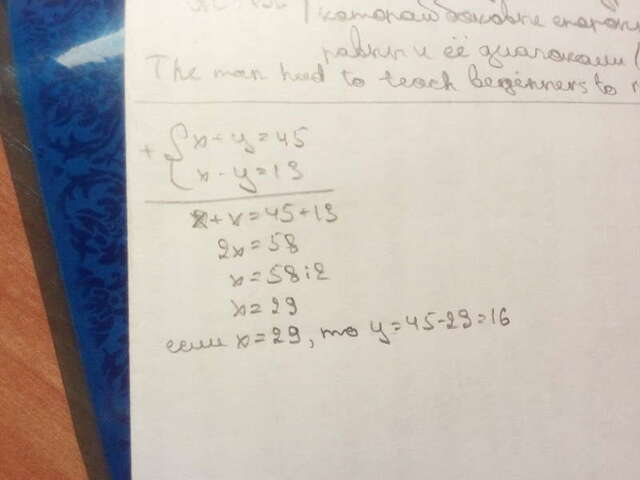 которой боковые
равны и её диагонали (
The man had to teach beginners to
+ { x + y = 45
x - y = 13
x + x = 45 + 13
2x = 58
x = 58 : 2
x = 29
если x = 29, то y = 45 - 29 = 16